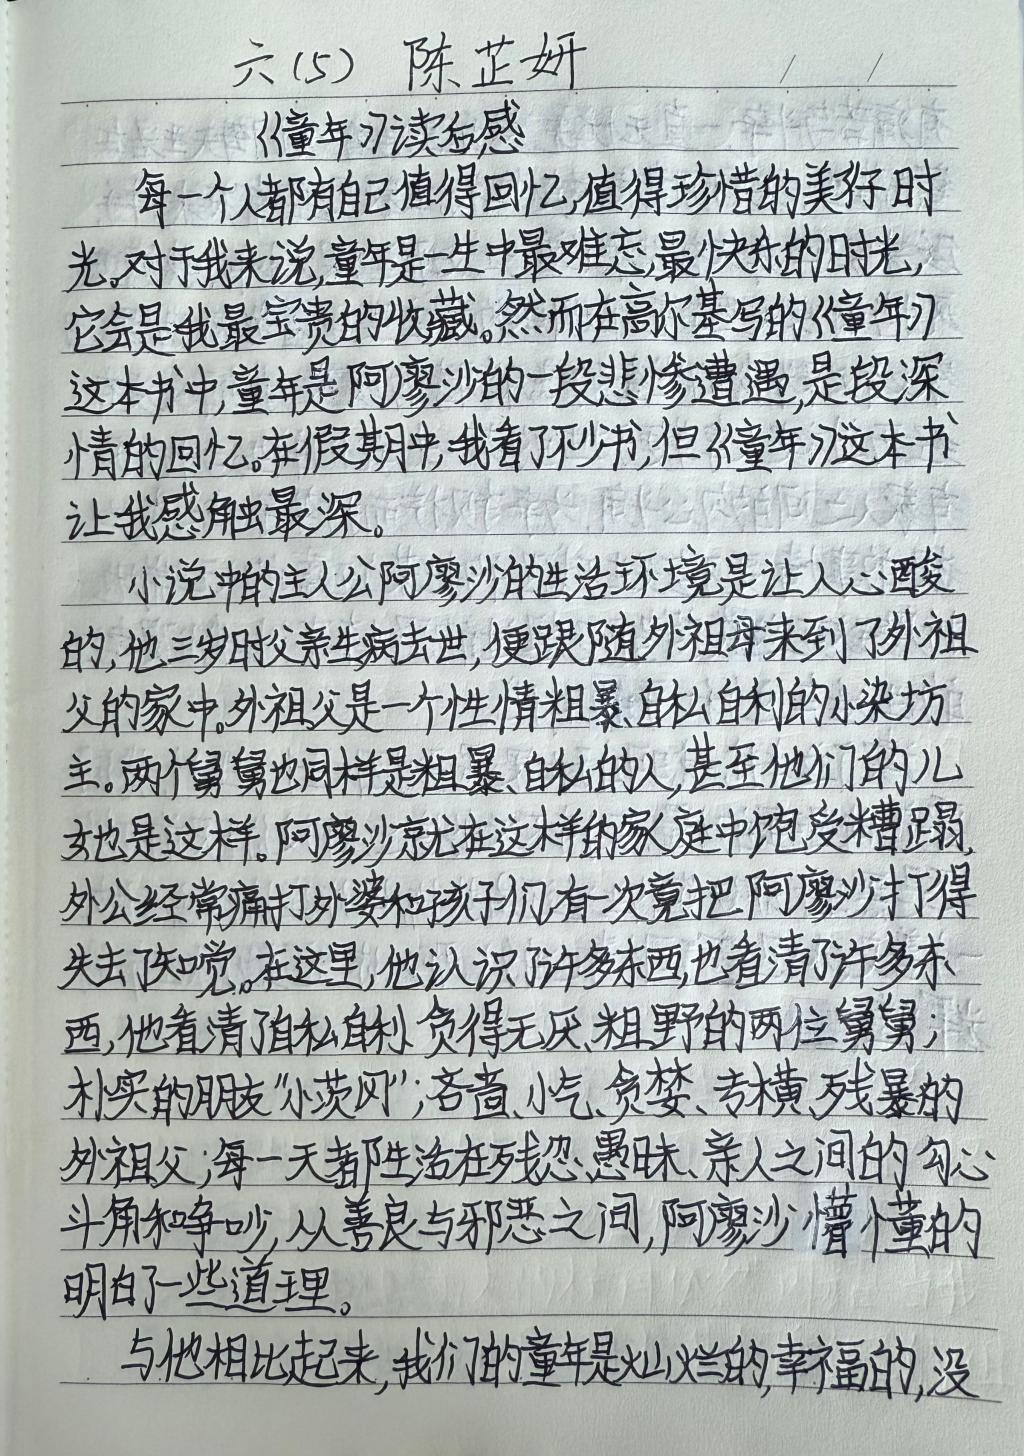 六(5) 陈芷妍 / /
《童年》读后感
每一个人都有自己值得回忆,值得珍惜的美好时
光。对于我来说,童年是一生中最难忘,最快乐的时光,
它会是我最宝贵的收藏。然而在高尔基写的《童年》
这本书中,童年是阿廖沙的一段悲惨遭遇,是段深
情的回忆。在假期中,我看了不少书,但《童年》这本书
让我感触最深。
小说中的主人公阿廖沙的生活环境是让人心酸
的,他三岁时父亲生病去世,便跟随外祖母来到了外祖
父的家中。外祖父是一个性情粗暴、自私自利的小染坊
主。两个舅舅也同样是粗暴、自私的人,甚至他们的儿
女也是这样。阿廖沙就在这样的家庭中饱受糟蹋,
外公经常痛打外婆和孩子们,有一次竟把阿廖沙打得
失去了知觉。在这里,他认识了许多东西,也看清了许多东
西,他看清了自私自利、贪得无厌、粗野的两位舅舅;
朴实的朋友“小茨冈”;吝啬、小气、贪婪、专横、残暴的
外祖父;每一天都生活在残忍、愚昧、亲人之间的勾心
斗角和争吵,从善良与邪恶之间,阿廖沙懵懂的
明白了一些道理。
与他相比起来,我们的童年是灿烂的,幸福的,没